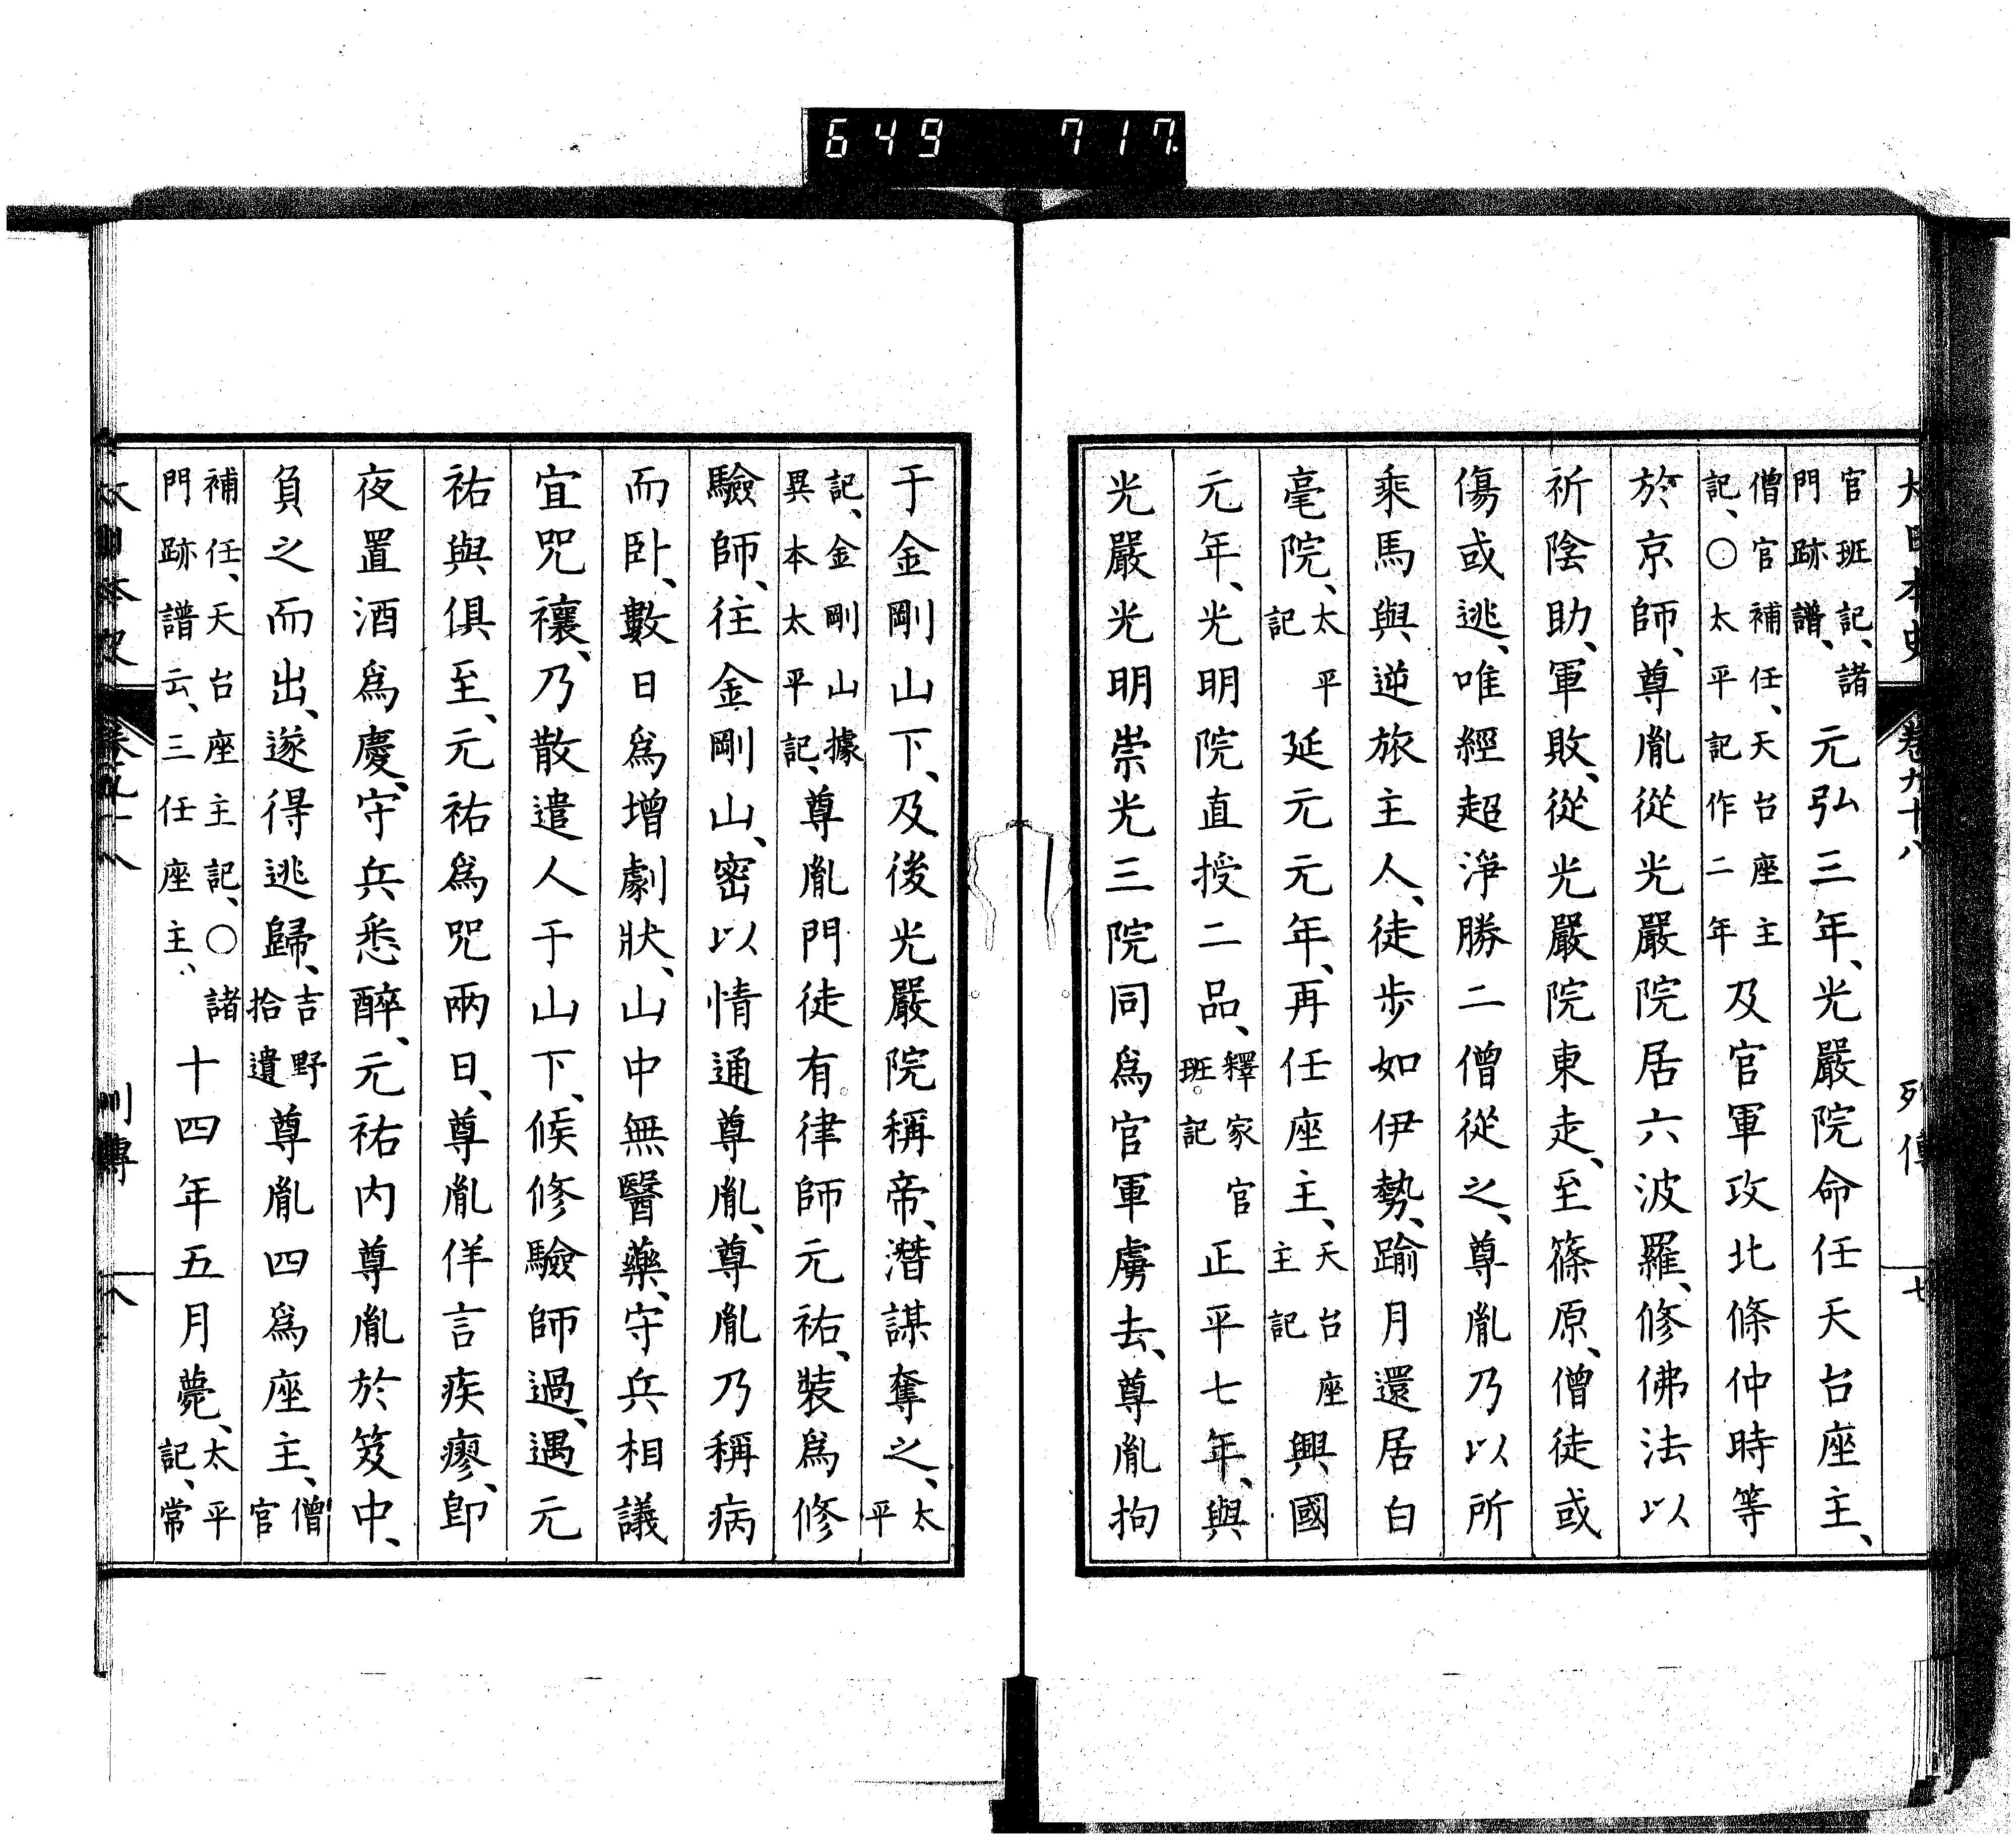 649 717.
大日本史 卷九十八 列傳 七
官班記、諸門跡譜、元弘三年、光嚴院命任天台座主、
僧官補任、天台座主記、○太平記作二年及官軍攻北條仲時等
於京師、尊胤從光嚴院居六波羅、修佛法以
祈陰助、軍敗、從光嚴院東走、至篠原、僧徒或
傷或逃、唯經超淨勝二僧從之、尊胤乃以所
乘馬與逆旅主人、徒步如伊勢、踰月還居白
毫院、太平記延元元年、再任座主、天台座主記興國
元年、光明院直授二品、釋家官班記正平七年、與
光嚴光明崇光三院同爲官軍虜去、尊胤拘
于金剛山下、及後光嚴院稱帝、潛謀奪之、太平
記、金剛山據異本太平記、尊胤門徒有律師元祐、裝爲修
驗師、往金剛山、密以情通尊胤、尊胤乃稱病
而臥、數日爲增劇狀、山中無醫藥、守兵相議
宜咒禳、乃散遣人于山下、候修驗師過、遇元
祐與俱至、元祐爲咒兩日、尊胤佯言疾瘳、卽
夜置酒爲慶、守兵悉醉、元祐內尊胤於笈中、
負之而出、遂得逃歸、吉野拾遺尊胤四爲座主、僧官
補任、天台座主記、○諸門跡譜云、三任座主、十四年五月薨、太平記、常
大日本史 卷九十八 列傳 八